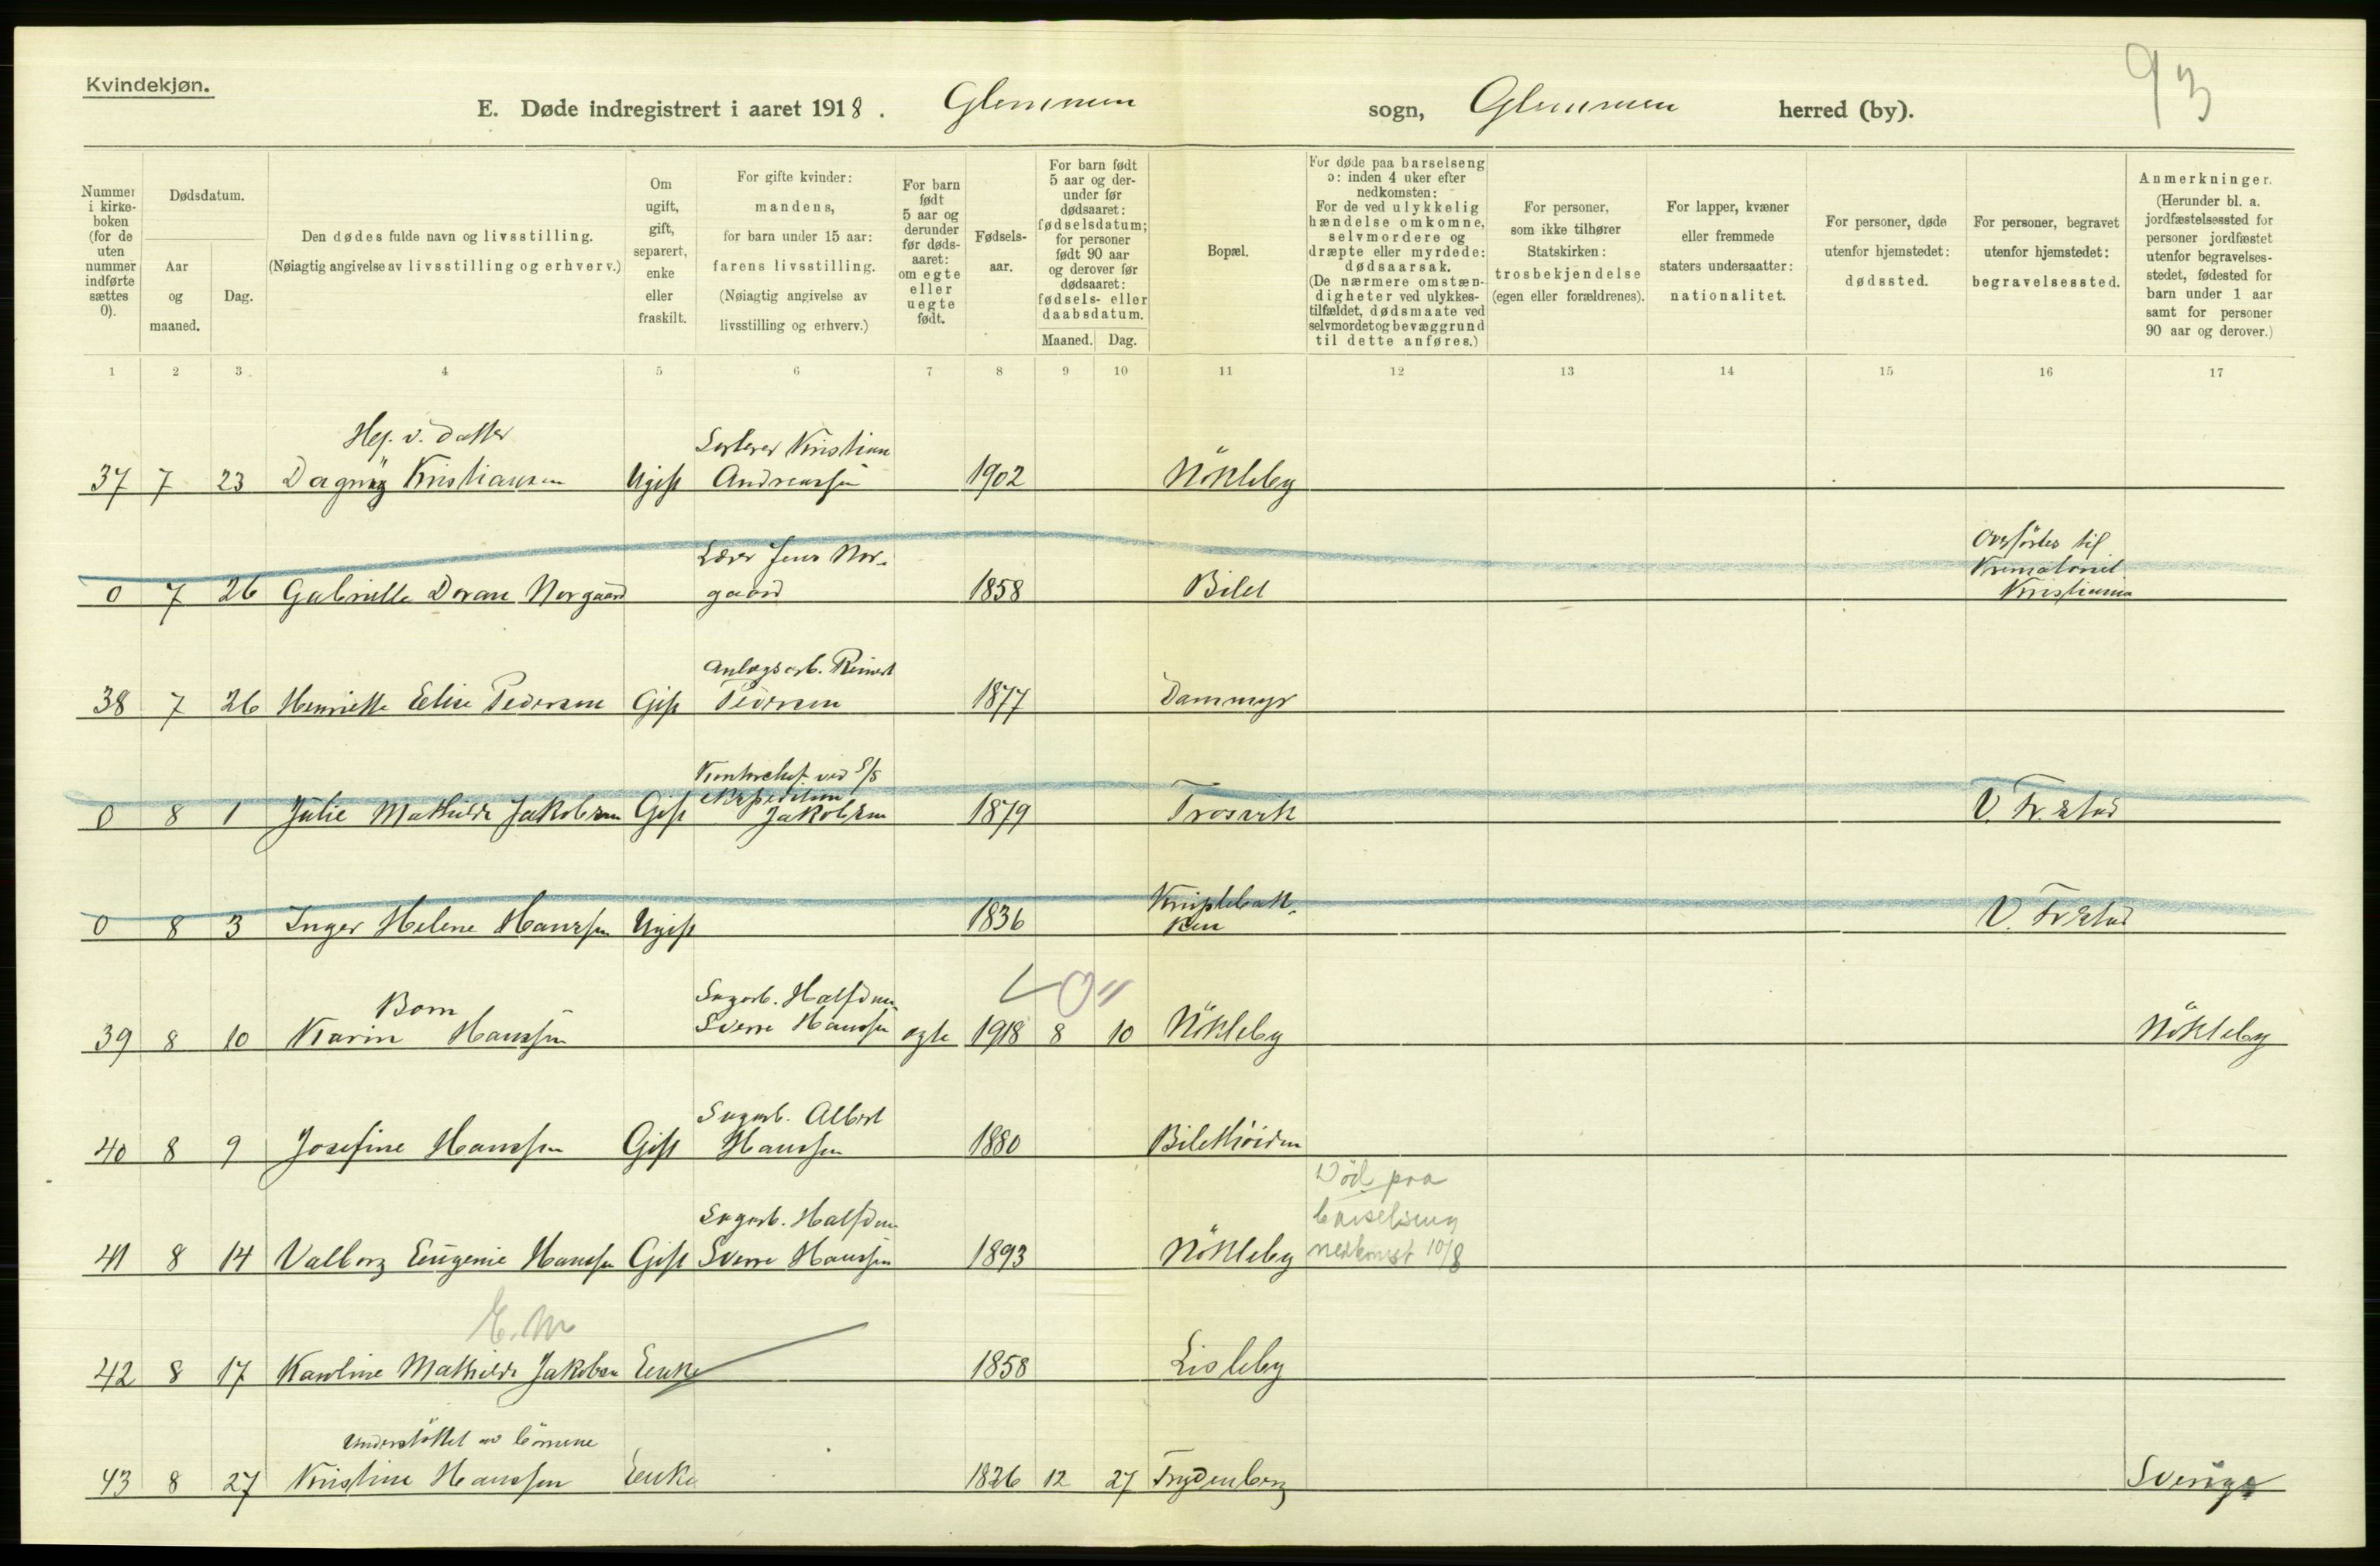 Kvindekjøn.
93
E. Døde indregistrert i aaret 1918. Glemmen sogn, Glemmen herred (by).
Nummer i kirkeboken (for de uten nummer indførte sættes 0).
Dødsdatum.
Aar og maaned.
Dag.
Den dødes fulde navn og livsstilling.
(Nøiagtig angivelse av livsstilling og erhverv.)
Om ugift, gift, separert, enke eller fraskilt.
For gifte kvinder: mandens, for barn under 15 aar: farens livsstilling. (Nøiagtig angivelse av livsstilling og erhverv.)
For barn født 5 aar og derunder før dødsaaret: om egte eller uegte født.
Fødselsaar.
For barn født 5 aar og derunder før dødsaaret: fødselsdatum; for personer født 90 aar og derover før dødsaaret: fødsels- eller daabsdatum.
Maaned. Dag.
Bopæl.
For døde paa barselseng ɔ: inden 4 uker efter nedkomsten:
For de ved ulykkelig hændelse omkomne, selvmordere og dræpte eller myrdede: dødsaarsak.
(De nærmere omstændigheter ved ulykkestilfældet, dødsmaate ved selvmordet og bevæggrund til dette anføres.)
For personer, som ikke tilhører Statskirken: trosbekjendelse (egen eller forældrenes).
For lapper, kvæner eller fremmede staters undersaatter: nationalitet.
For personer, døde utenfor hjemstedet: dødssted.
For personer, begravet utenfor hjemstedet: begravelsessted.
Anmerkninger. (Herunder bl. a. jordfæstelsessted for personer jordfæstet utenfor begravelsesstedet, fødested for barn under 1 aar samt for personer 90 aar og derover.)
1 2 3 4 5 6 7 8 9 10 11 12 13 14 15 16 17
Hej. v. datter Sorterer Kristian
37 7 23 Dagny Kristiansen Ugift Andreassen 1902 Nökleby
Lærer Jens Nor- Overförtes til
Krematoriet
0 7 26 Gabrielle Dorane Norgaard gaard 1858 Bilet Kristiania
Anlægsarb. Reinert
38 7 26 Henriette Elise Pedersen Gift Pedersen 1877 Dammyr
Kontorchef ved S/S
ekspedition
0 8 1 Julie Mathilde Jakobsen Gift Jakobsen 1879 Trosvik V. Fr.stad
Kniplebak-
0 8 3 Inger Helene Hanssen Ugift 1836 ken V. Frstad
Barn Sagarb. Halfdan
39 8 10 Karin Hanssen Sverre Hanssen egte 1918 8 10 Nökleby Nökleby
Sagarb. Albert
40 8 9 Josefine Hanssen Gift Hanssen 1880 Bilethöiden
Död paa
Sagarb. Halfdan barselseng
41 8 14 Valborg Eugenie Hanssen Gift Sverre Hanssen 1893 Nökleby nedkomst 10/8
E. m
42 8 17 Karoline Mathilde Jakobsen Enke 1858 Lisleby
Understöttet av börnene
43 8 27 Kristine Hanssen Enke 1826 12 27 Trydenberg Sverige